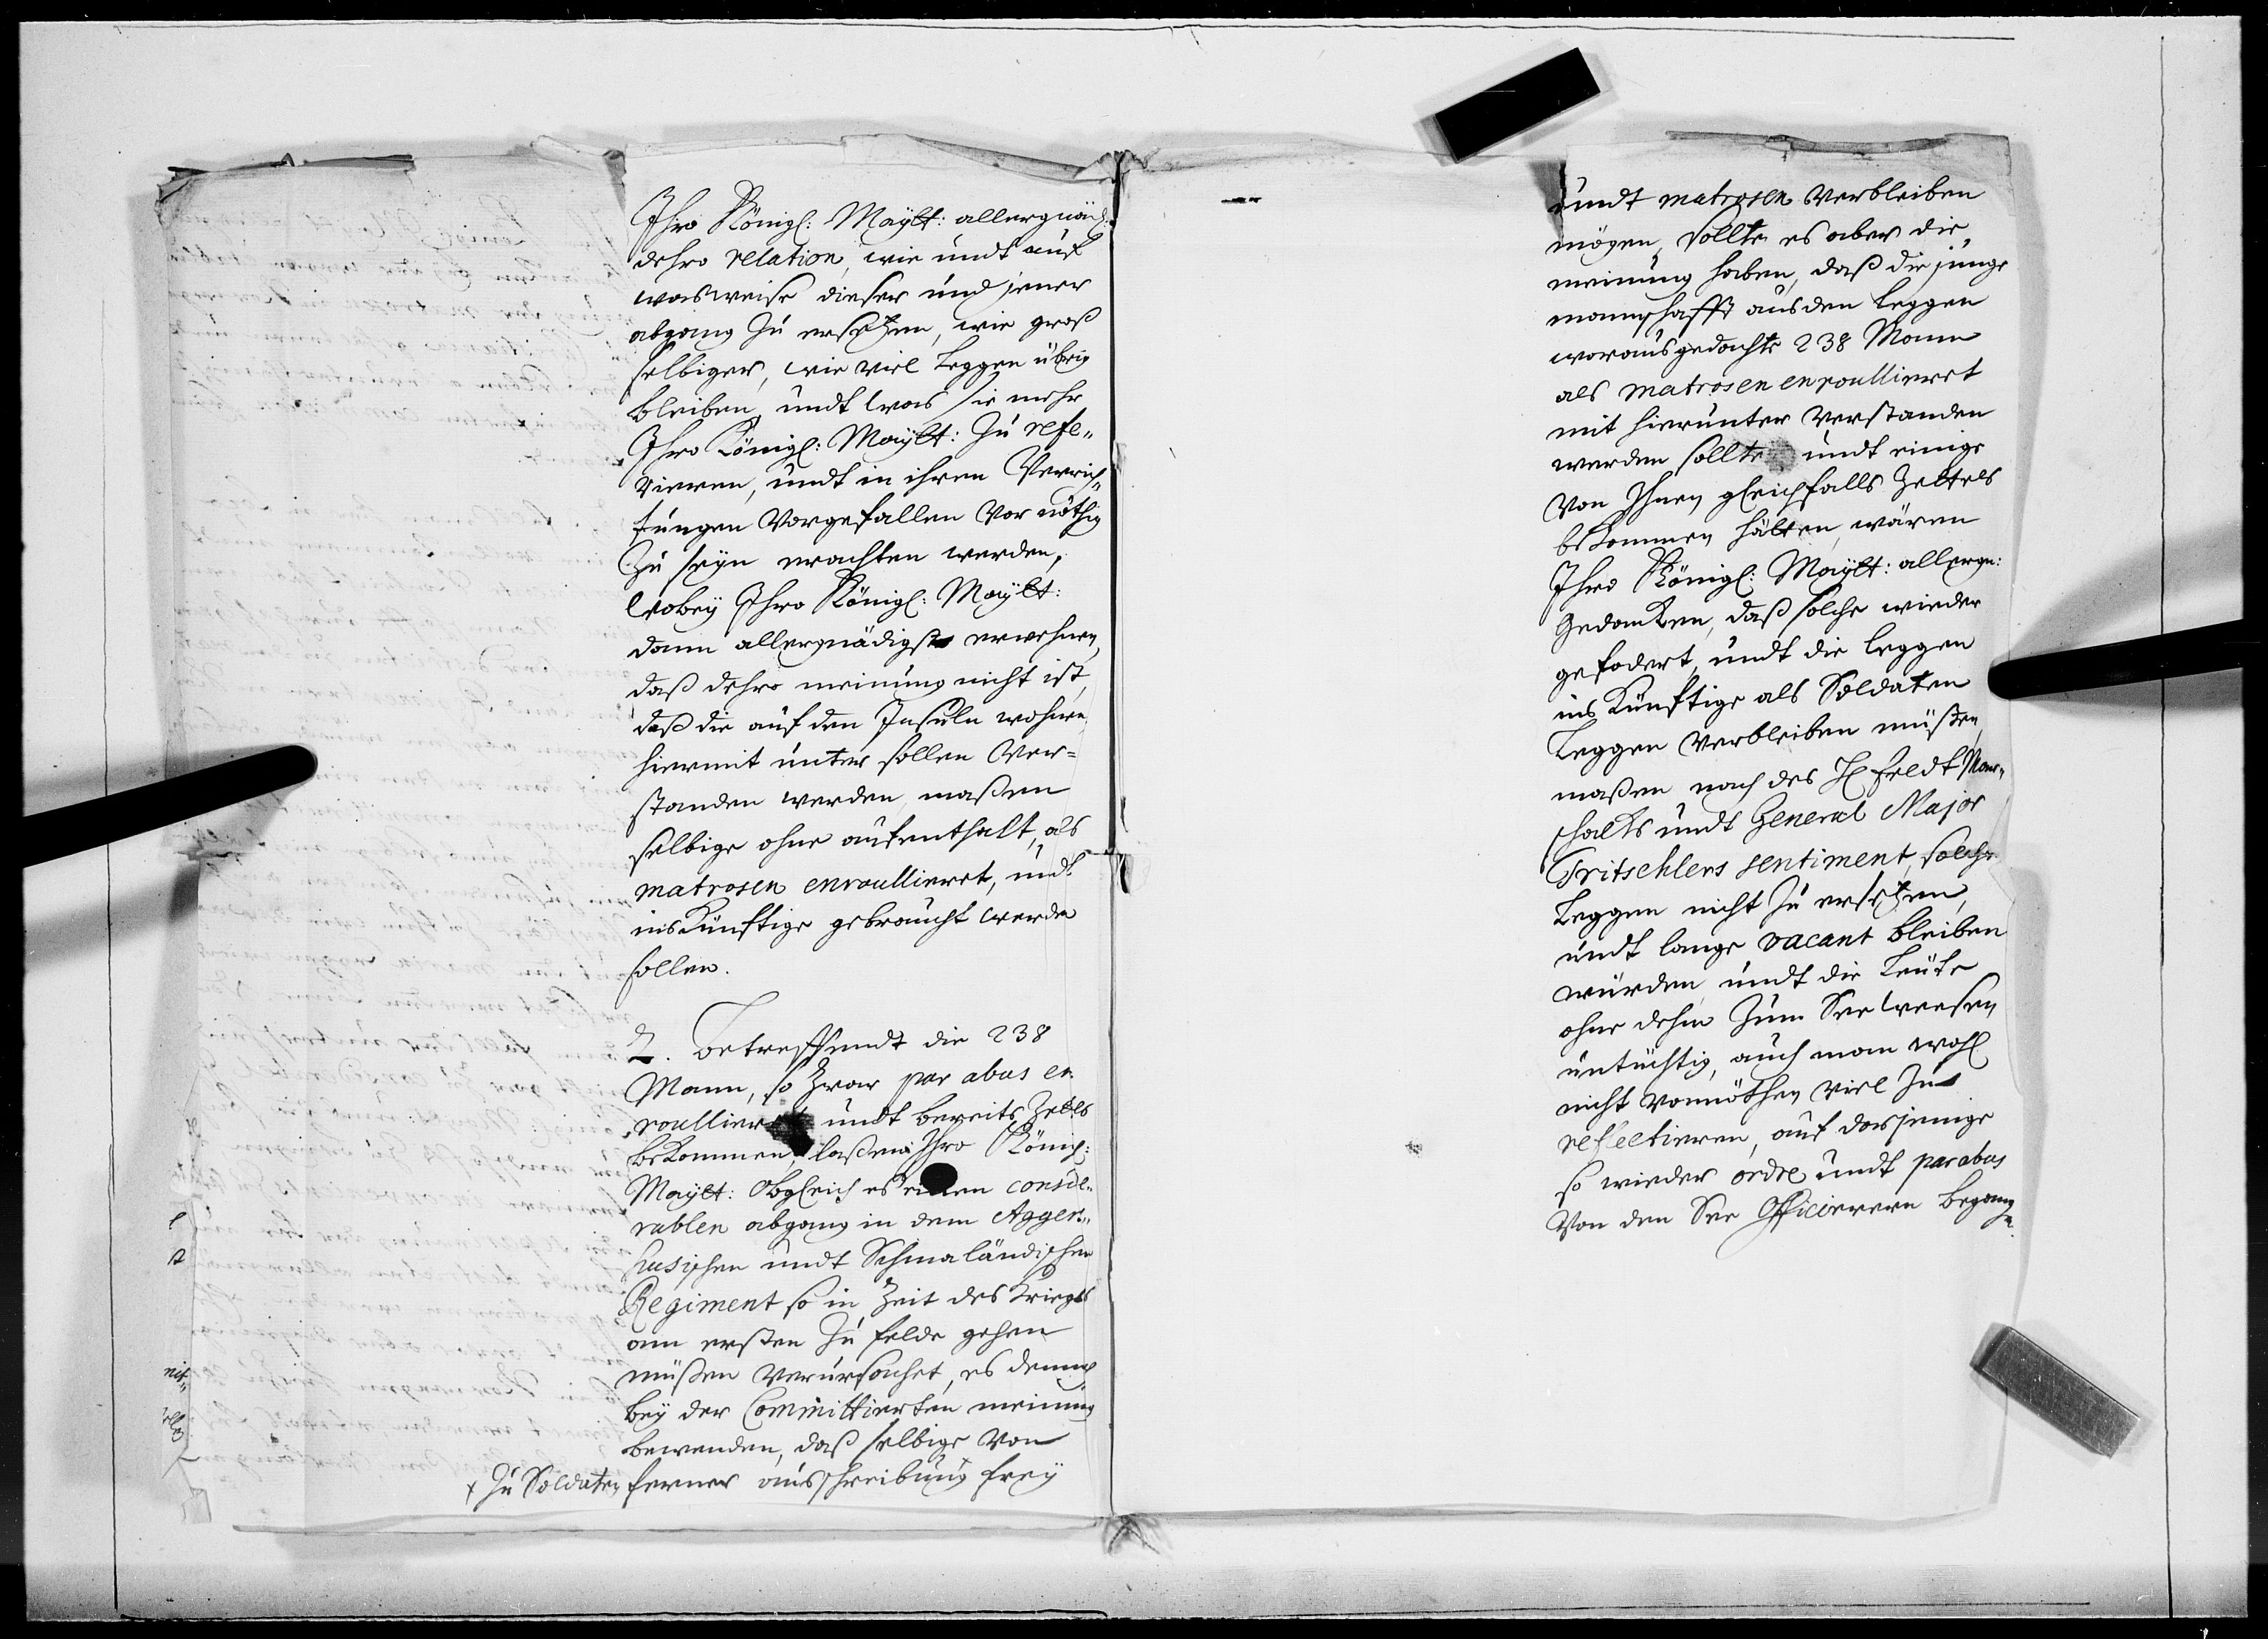 Ihro Königl: Maÿtt: allergnäd:
dehro relation, wie undt auf
wasweise dieser und jener
abgang zu ersetzen, wie groß
selbiger, wie viel Leggen übrig
bleiben, undt was sie mehr
Ihro Königl: Maÿtt: zu refe„
rieren, undt in ihren Verrich„
tungen vorgefallen vor nöthig
zu seyn erachten werden,
wobeÿ Ihro Königl: Maÿtt:
dann allergnädigst erwehnen,
daß dehro meinung nicht ist,
daß die auf den Insuln wohnen
hiermit unter sollen ver=
standen werden, maßen
selbige ohne aufenthalt, als
matrosen enroullieret, undt
ins Künftige gebraucht werden
sollen.
2. Betreffendt die 238
Mann, so zwar par abus en
roulliert undt bereits Zettls
bekommen, laßen Ihro König:
Maÿtt: Obgleich es einen conside„
rablen abgang in dem Agger„
husischen undt Schmaländischen
Regiment so in Zeit des Krieges
am ersten zu felde gehen
müßen verursachet, es dennoch
beÿ der Committierten meinung
bewenden, daß selbige von
ferner ausschreibung x freÿ
x zu Soldaten
undt matrosen verbleiben
mögen, sollte es aber die
meinung haben, daß die junge
mannschafft aus den Leggen
woraus gedachte 238 Mann
als matrosen enroullieret
mit hierunter verstanden
werden sollte undt einige
von Ihnen gleichfalls Zettels
bekommen hätten, wären
Ihro Königl: Maÿtt: allergn:
Gedanken, daß solche wieder
gefodert, undt die Leggen
ins Künftige als Soldaten
Leggen verbleiben müßten,
maßen nach des H Feldt Mar„
schalks undt General Major
Tritschlers sentiment, solche
Leggen nicht zu ersetzen,
undt lange vacant bleiben
würden, undt die Leute
ohne dehm zum See Weesen
untüchtig, auch man wohl
nicht vonnöthen viel zu
reflectieren, auf dasjenige
so wieder ordre undt par abus
von den See Officierern begang
n.